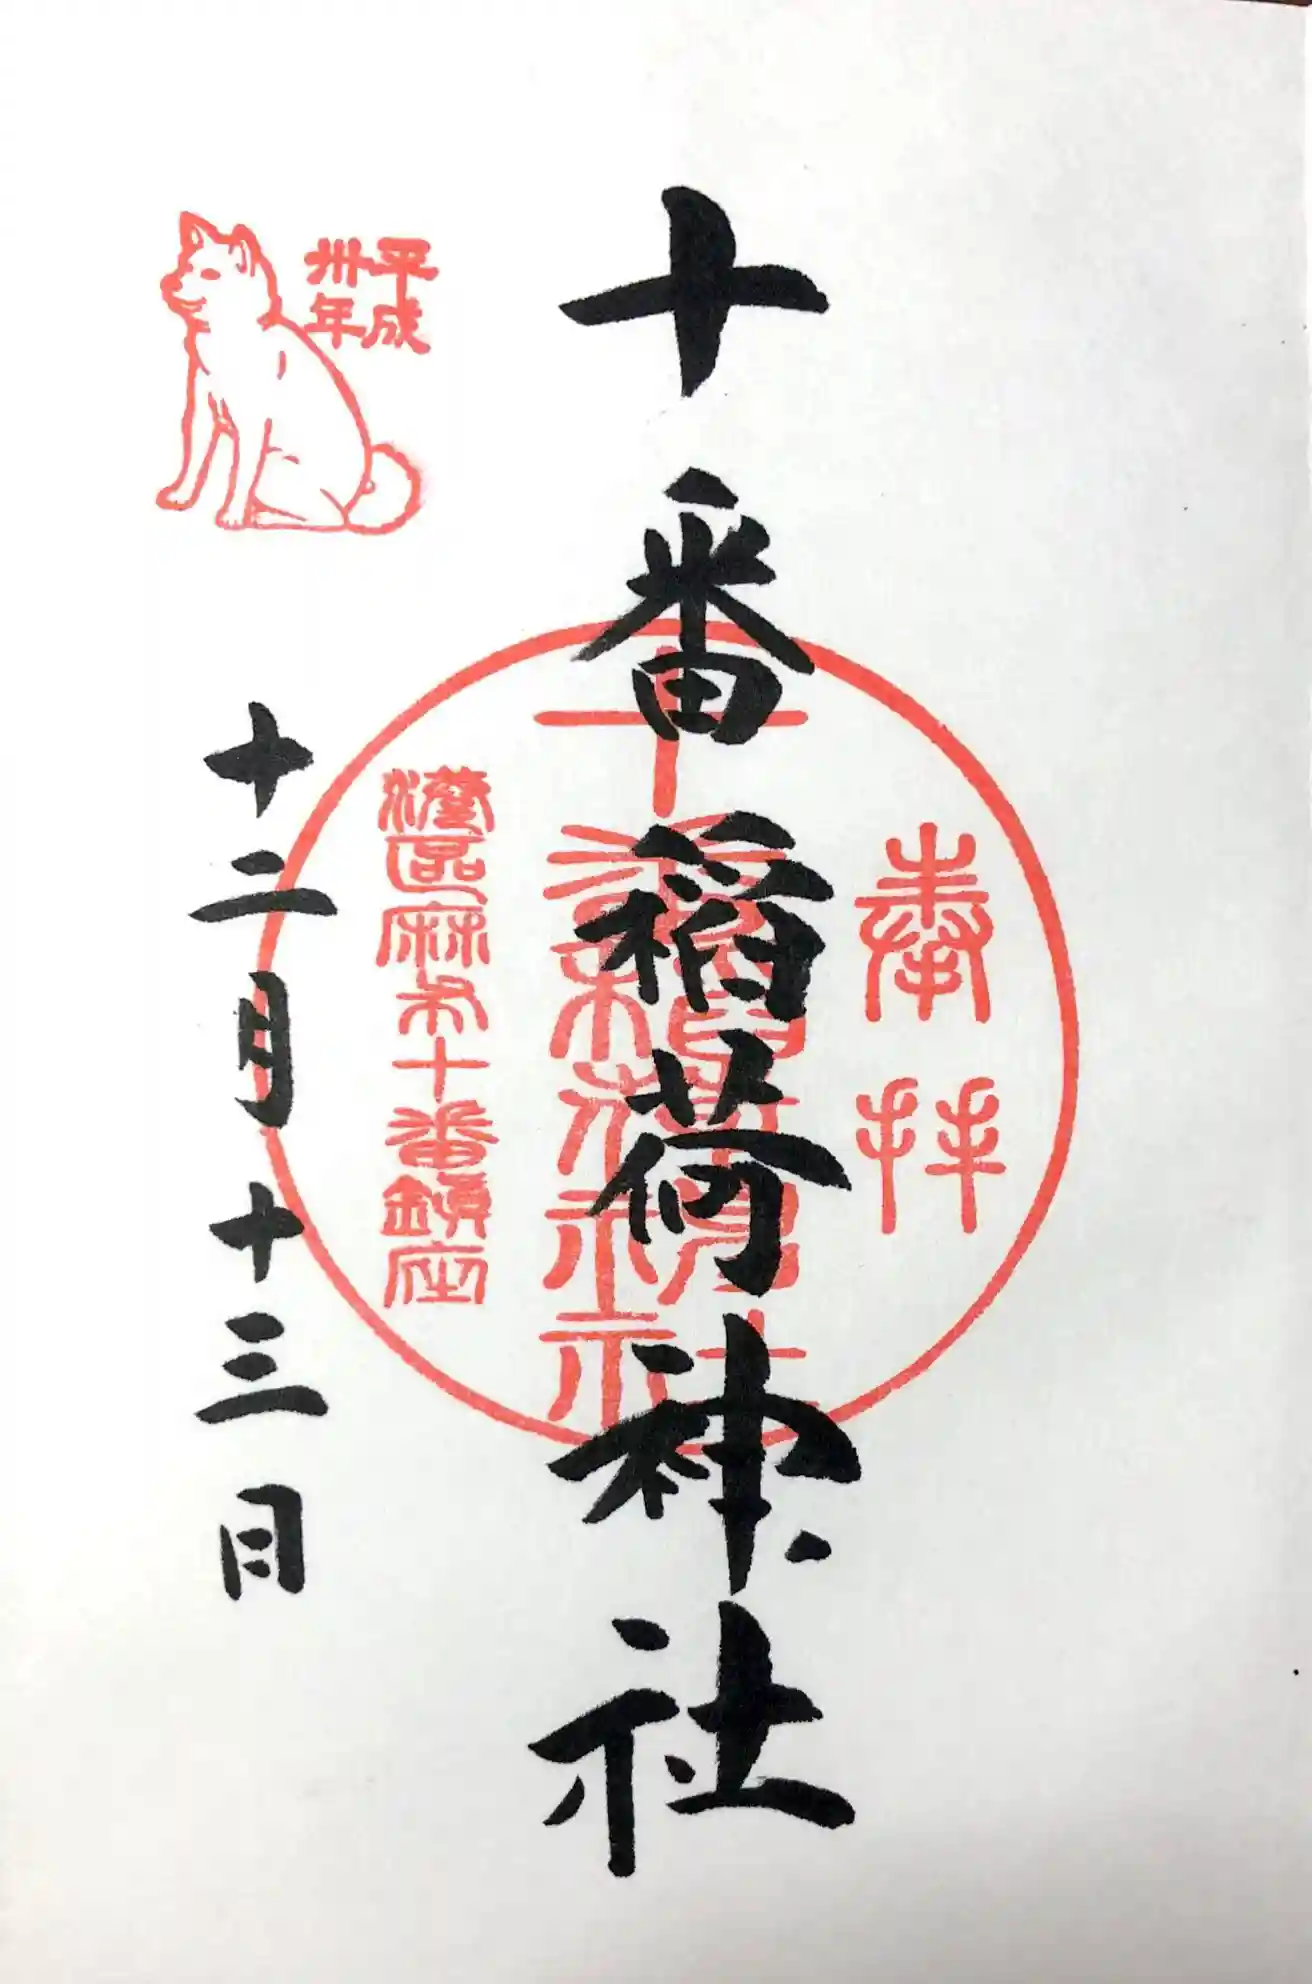 奉拝
十番稲荷神社
港區麻布十番鎮座
平成
卅年
十二月十三日